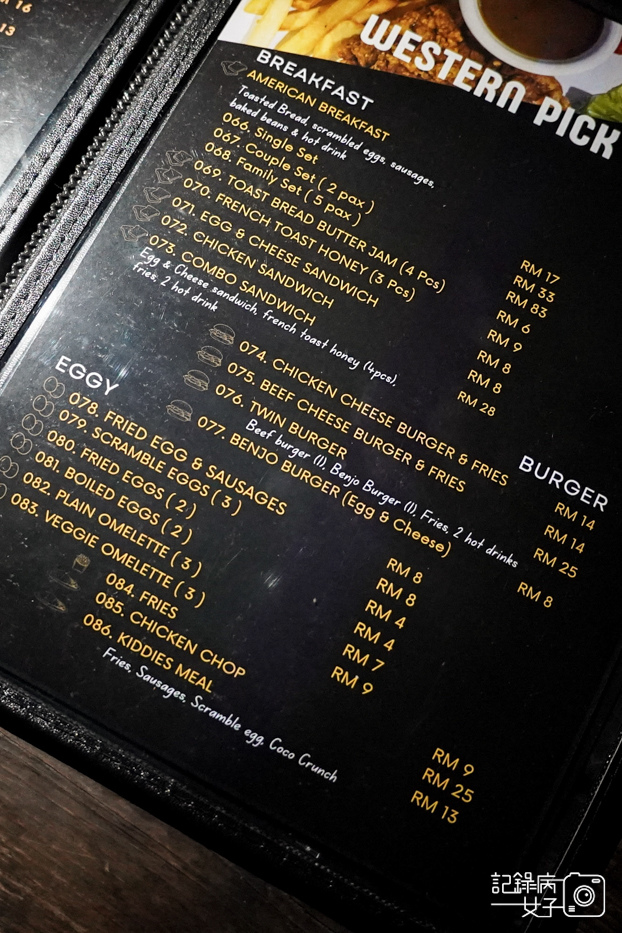 M 16
13
WESTERN PICK
BREAKFAST
AMERICAN BREAKFAST
Toasted Bread, scrambled eggs, sausages,
baked beans & hot drink
066. Single Set RM 17
067. Couple Set ( 2 pax ) RM 33
068. Family Set ( 5 pax ) RM 83
069. TOAST BREAD BUTTER JAM (4 Pcs) RM 6
070. FRENCH TOAST HONEY (3 Pcs) RM 9
071. EGG & CHEESE SANDWICH RM 8
072. CHICKEN SANDWICH RM 8
073. COMBO SANDWICH RM 28
Egg & Cheese sandwich, french toast honey (4pcs),
fries, 2 hot drink
BURGER
074. CHICKEN CHEESE BURGER & FRIES RM 14
075. BEEF CHEESE BURGER & FRIES RM 14
076. TWIN BURGER RM 25
Beef burger (1), Benjo Burger (1), Fries, 2 hot drinks
077. BENJO BURGER (Egg & Cheese) RM 8
EGGY
078. FRIED EGG & SAUSAGES RM 8
079. SCRAMBLE EGGS ( 3 ) RM 8
080. FRIED EGGS ( 2 ) RM 4
081. BOILED EGGS ( 2 ) RM 4
082. PLAIN OMELETTE ( 3 ) RM 7
083. VEGGIE OMELETTE ( 3 ) RM 9
084. FRIES RM 9
085. CHICKEN CHOP RM 25
086. KIDDIES MEAL RM 13
Fries, Sausages, Scramble egg, Coco Crunch
記錄病
女子